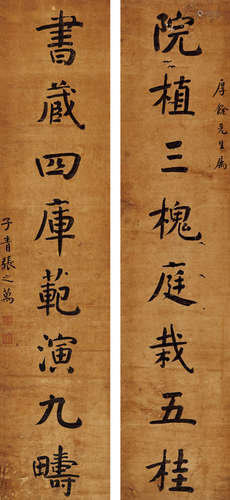 厚銘先生屬
院植三槐庭栽五桂
書蔵四庫範演九疇
子青張之萬